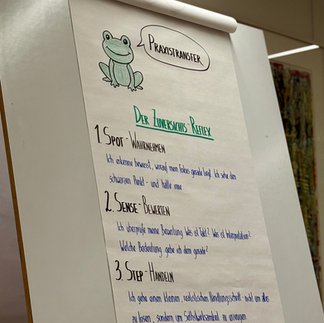 Praxistransfer
Der Zuversichts-Reflex
1. Spot - Wahrnehmen
Ich erkenne bewusst, worauf mein Fokus gerade liegt. Ich sehe den
schwarzen Punkt - und halte inne
2. Sense - Bewerten
Ich überprüfe meine Bewertung. Was ist Fakt? Was ist Interpretation?
Welche Bedeutung gebe ich dem gerade?
3. Step - Handeln
Ich gehe einen kleinen, realistischen Handlungsschritt - nicht um alles
zu lösen, sondern um Selbstwirksamkeit zu erzeugen